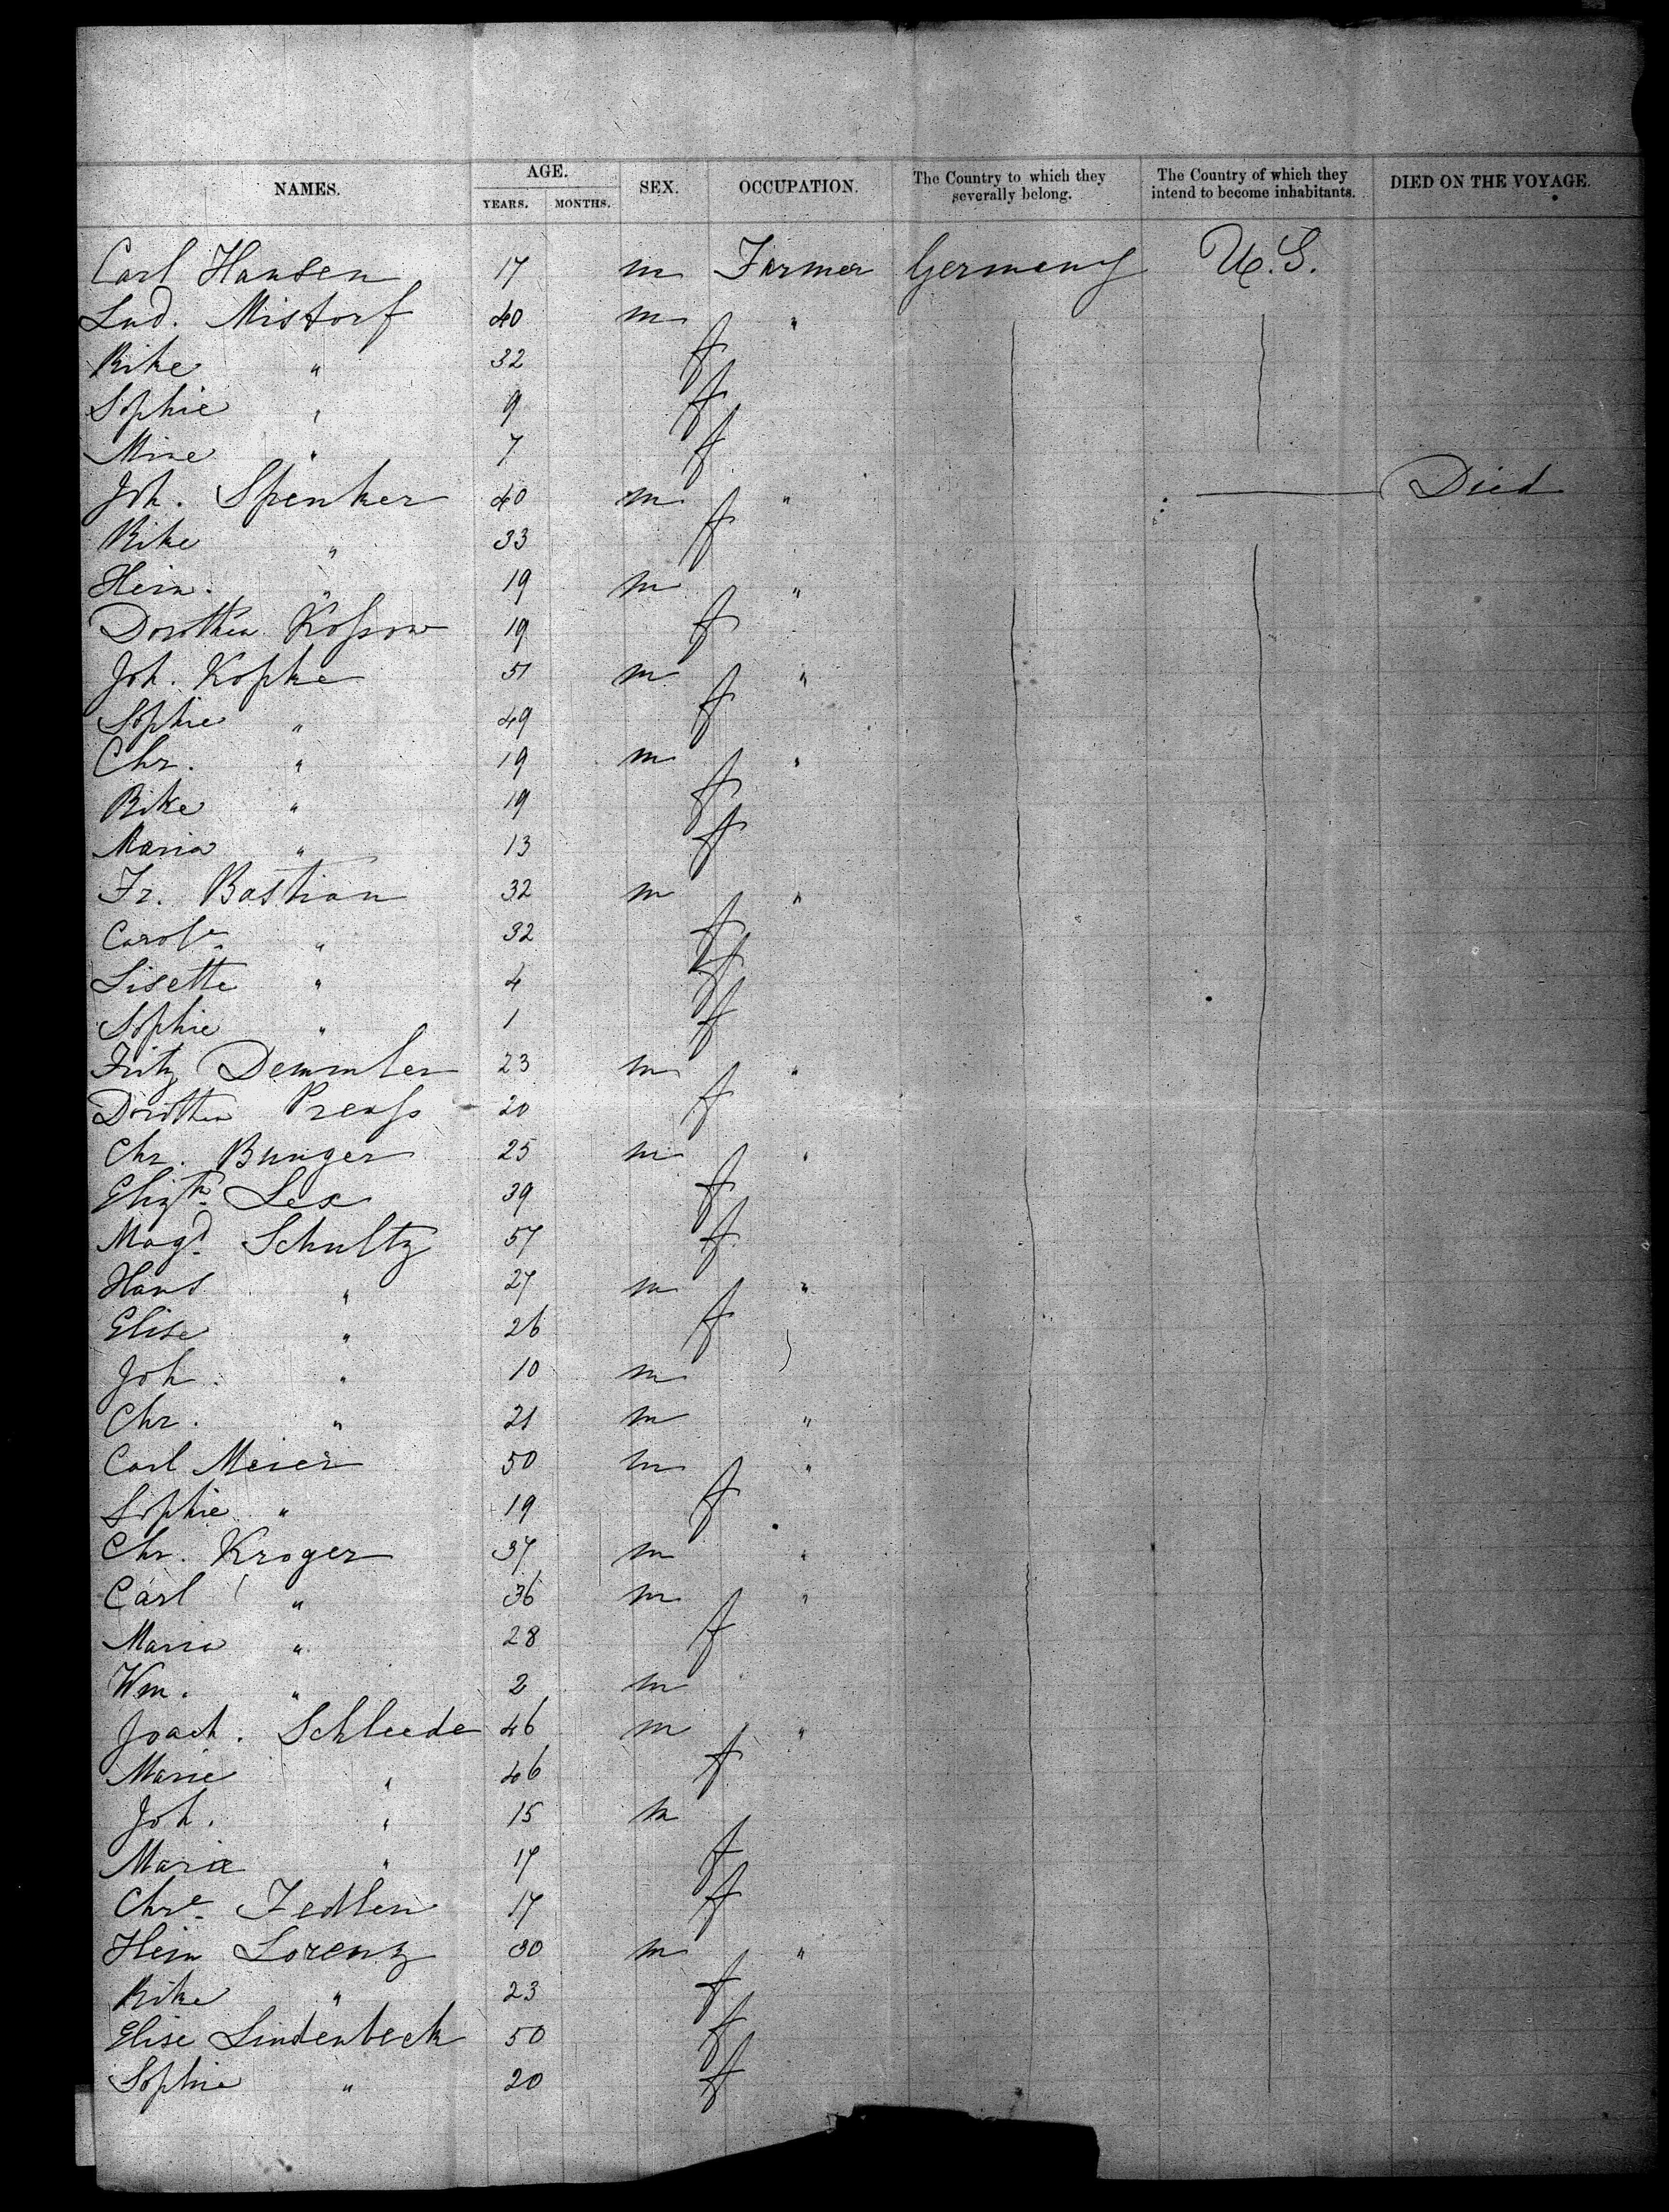 NAMES. AGE. SEX. OCCUPATION. The Country to which they severally belong. The Country of which they intend to become inhabitants. DIED ON THE VOYAGE.
YEARS. MONTHS.
Carl Hansen 17 m Farmer Germany U.S.
Lud. Mistorf 40 m "
Rike " 32 f
Sophie " 9 f
Mine " 7 f
Joh. Spenker 40 m " Died
Rike " 33 f
Hein. " 19 m "
Dorothea Koßow 19 f
Joh. Kopke 51 m "
Sophie " 49 f
Chr. " 19 m "
Rike " 19 f
Maria " 13 f
Fr. Bastian 32 m "
Carole " 32 f
Lisette " 4 f
Sophie " 1 f
Fritz Demmler 23 m "
Dorothea Preuß 20 f
Chr. Bunger 25 m "
Elizth Lex 39 f
Magd Schultz 57 f
Hans " 27 m "
Elise " 26 f
Joh. " 10 m
Chr. " 21 m "
Carl Meier 50 m "
Sophie " 19 f
Chr. Kroger 37 m "
Carl " 36 m "
Maria " 28 f
Wm. " 2 m
Joach. Schleede 46 m "
Marie " 46 f
Joh. " 15 m
Maria " 17 f
Chre 17 f
Hein Lorenz 30 m "
Rike " 23 f
Elise Lindenbeck 50 f
Sophie " 20 f